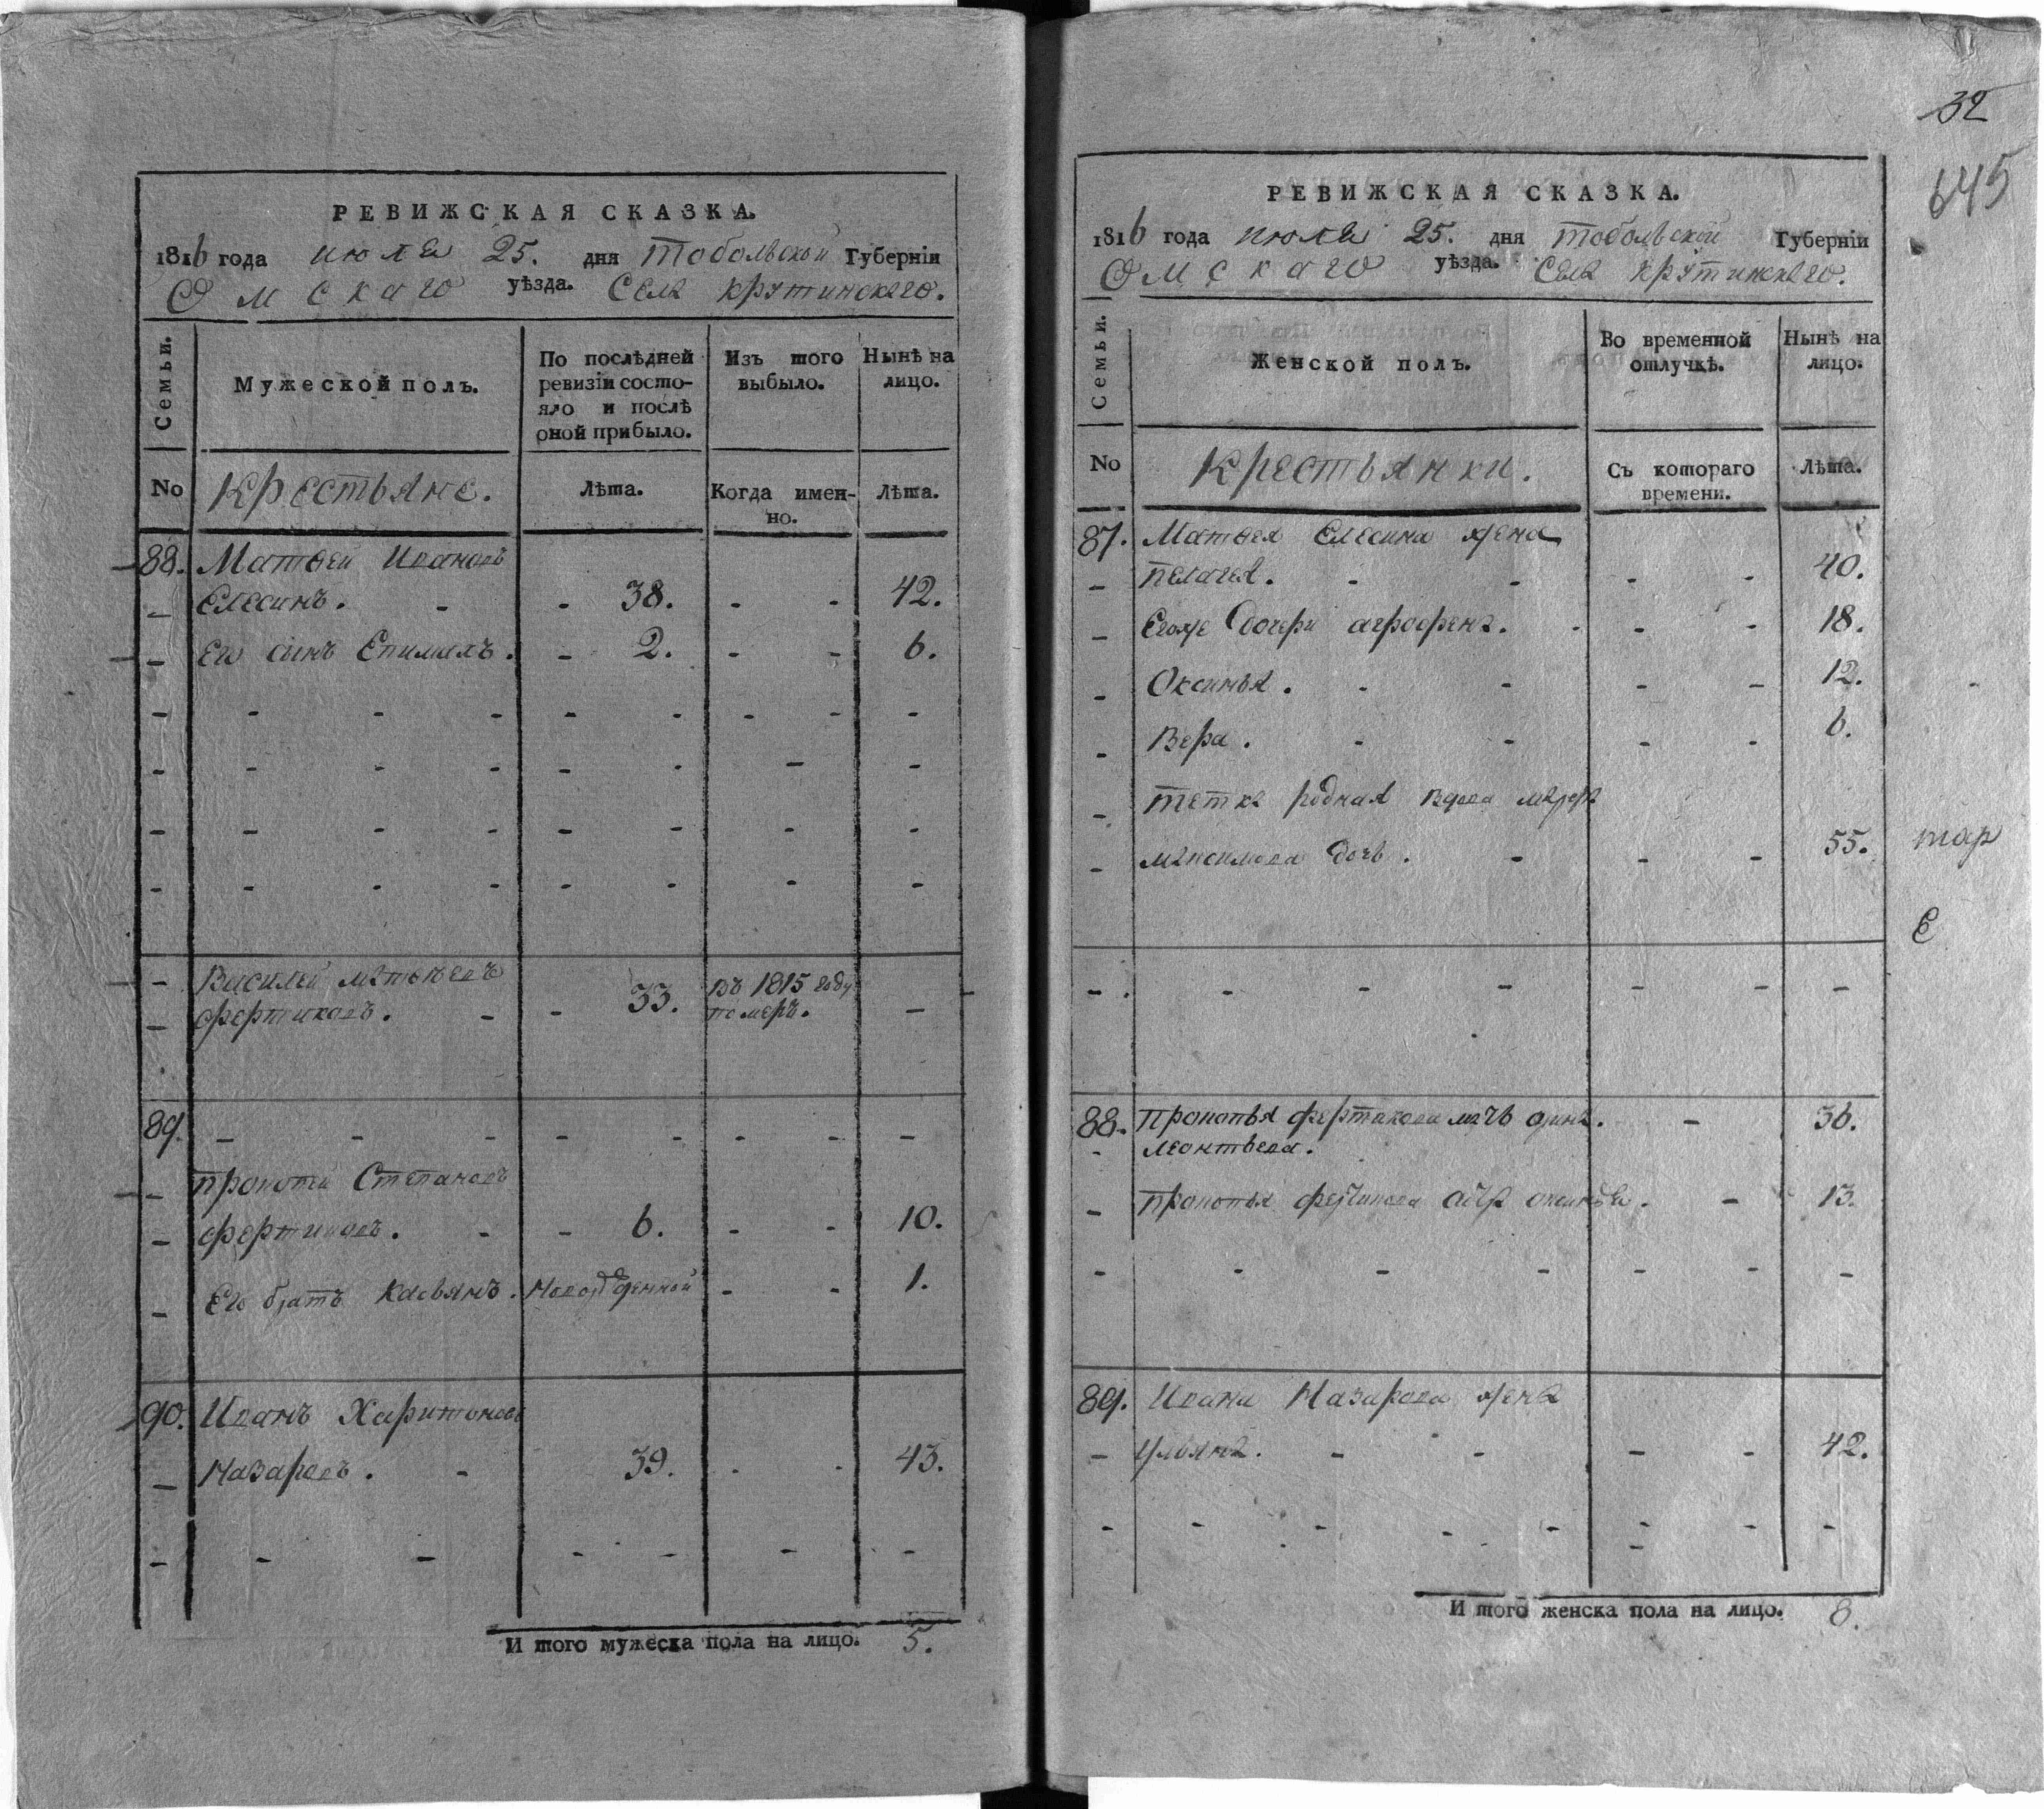 РЕВИЖСКАЯ СКАЗКА.
1816 года июля 25. дня Тобольской Губернїи
Омскаго уѣзда. Села Крутинскаго.
Семьи.
Мужеской полъ.
По послѣдней
ревизїи состо-
яло и послѣ
оной прибыло.
Изъ того
выбыло.
Нынѣ на
лицо.
No
Крестьяне.
Лѣта.
Когда имен-
но.
Лѣта.
88. Матвей Ивановъ
Елесинъ. - - 38. - - 42.
Его сынъ - 2. - - 6.
Василей
- - 33. Въ 1815 году
померъ. -
89. - - - - - - - -
Прокопей Степановъ
- - 6. - - 10.
Его братъ Касьянъ. - - 1.
90. Иванъ Харитоновъ
Назаровъ. - 39. - - 43.
И того мужеска пола на лицо. 5.
32
645
РЕВИЖСКАЯ СКАЗКА.
1816 года июля 25. дня Тобольской Губернїи
Омскаго уѣзда. Села Крутинскаго.
Семьи.
Женской полъ.
Во временной
отлучкѣ.
Нынѣ на
лицо.
No
Крестьянки.
Съ котораго
времени.
Лѣта.
87. Матвея Елесина жена
Пелагея. - - - - 40.
Егоже дочери - - 18.
Оксинья. - - - - 12.
Вера. - - - - 6.
Тетка родная вдова Марфа
дочь. - - - 55. мар
е
88. Прокопья мать - 36.
Леонтьева.
Прокопья - 13.
89. Ивана Назарова жена
Ульяна. - - - - 42.
И того женска пола на лицо. 8.